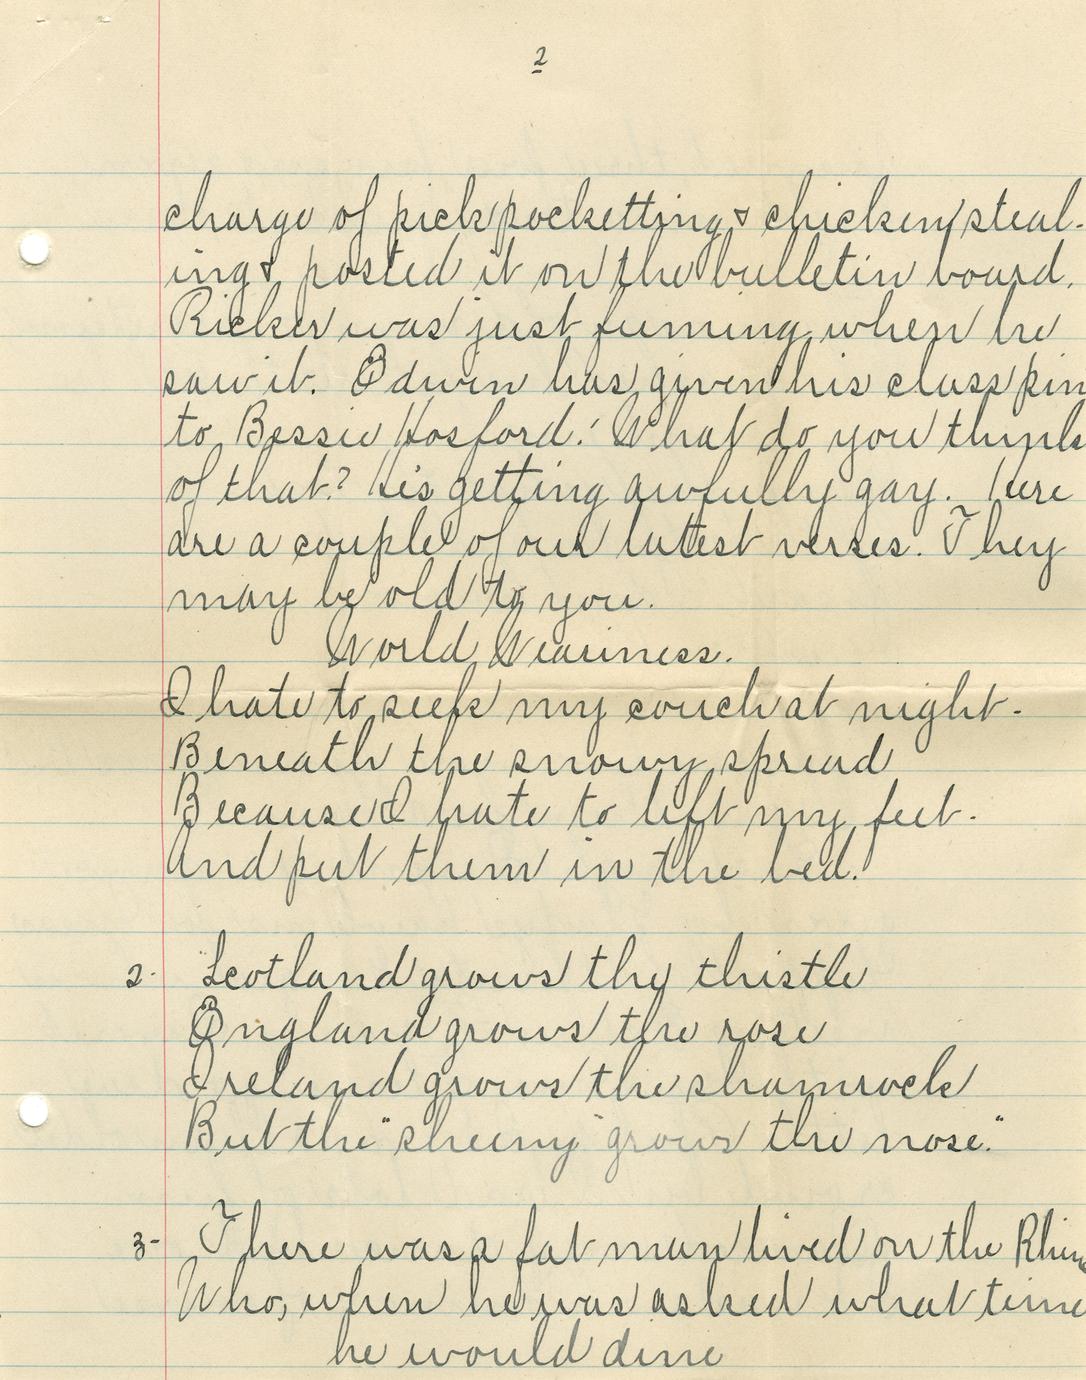 2
charge of pickpocketting & chicken steal-
ing & posted it on the bulletin board.
Ricker was just fuming when he
saw it. Edwin has given his class pin
to Bessie Hosford! What do you think
of that? His getting awfully gay. Here
are a couple of our latest verses. They
may be old to you.
World Weariness.
I hate to seek my couch at night.
Beneath the snowy spread
Because I hate to lift my feet.
And put them in the bed.
2- Scotland grows thy thistle
England grows the rose
Ireland grows the shamrock
But the "sheeny" grows the nose."
3- There was a fat man lived on the Rhine
Who, when he was asked what time
he would dine